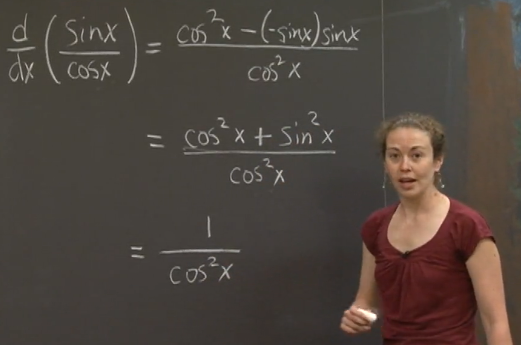 d/dx (sinx/cosx) = (cos²x - (-sinx)sinx)/cos²x
= (cos²x + sin²x)/cos²x
= 1/cos²x